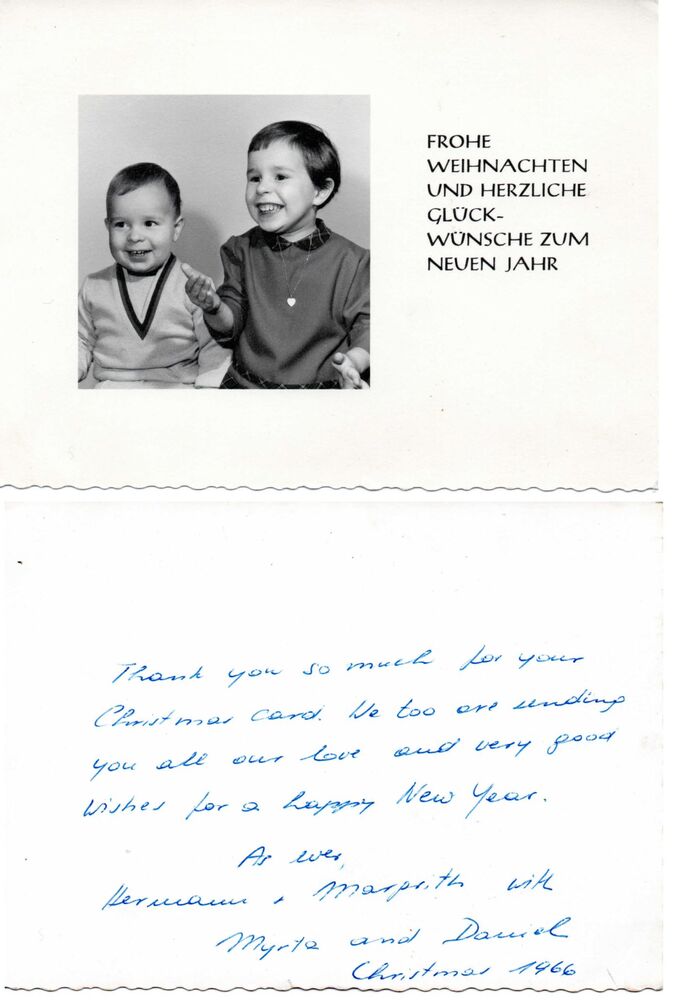 FROHE
WEIHNACHTEN
UND HERZLICHE
GLÜCK-
WÜNSCHE ZUM
NEUEN JAHR
Thank you so much for your
Christmas card. We too are sending
you all our love and very good
wishes for a happy New Year.
As ever,
Hermann + Margrith with
Myrta and Daniel
Christmas 1966